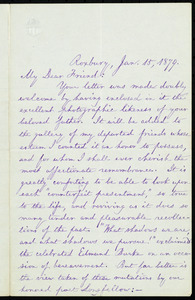 Roxbury, Jan. 15, 1879.
My Dear Friend:
Your letter was made doubly
welcome by having enclosed in it the
excellent photographic likeness of your
beloved father. It will be added to
the gallery of my departed friends whose
I counted it an honor to possess,
and for whom I shall ever cherish the
most affectionate remembrance. It is
greatly comforting to be able to look upon
such "counterfeit presentment," so true
to the life, and reviving as it does so
many under and pleasurable recollec-
tions of the past. "What shadows we are,
and what shadows we pursue!" exclaimed
the celebrated Edmund Burke on an occa-
sion of bereavement. But far better is
the view taken of our mutations by our
honored poet Longfellow:—